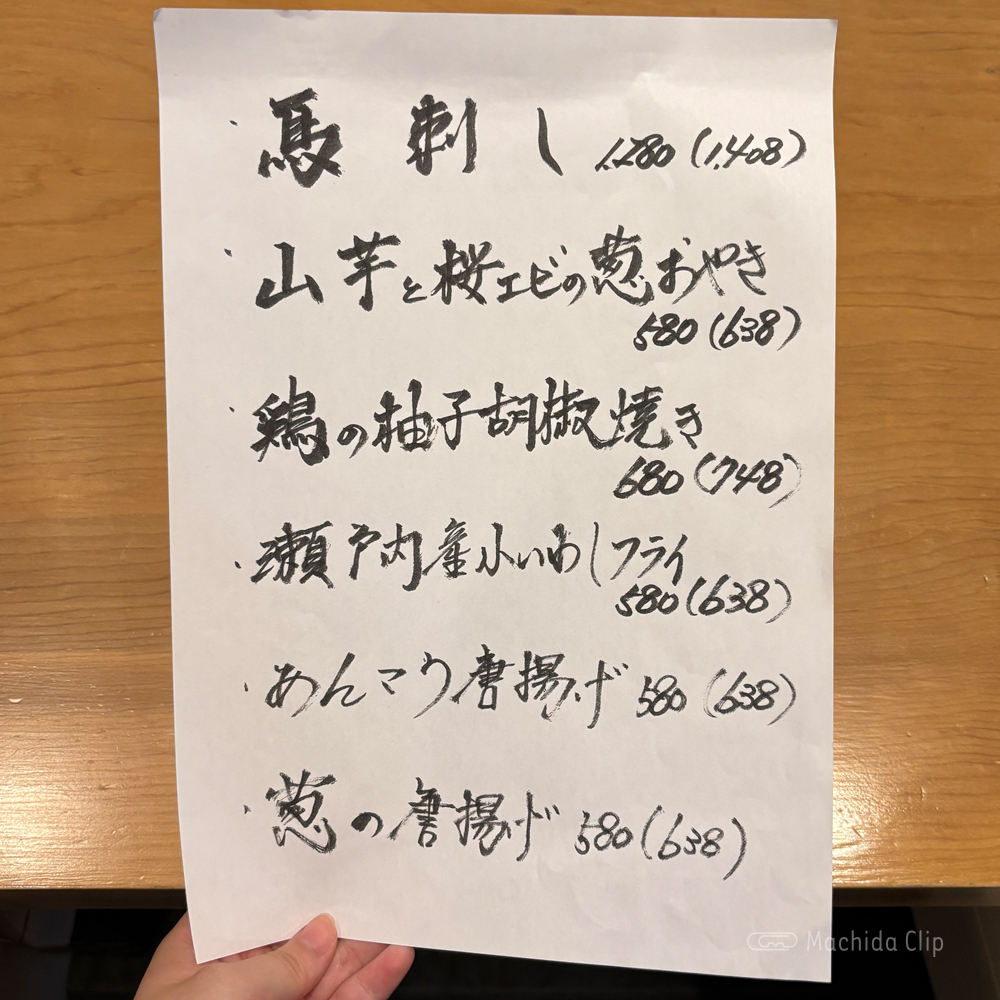 ・馬刺し 1,280(1,408)
・山芋と桜エビの葱おやき
580(638)
・鶏の柚子胡椒焼き
680(748)
・瀬戸内産小いわしフライ
580(638)
・あんこう唐揚げ 580(638)
・葱の唐揚げ 580(638)
Machida Clip